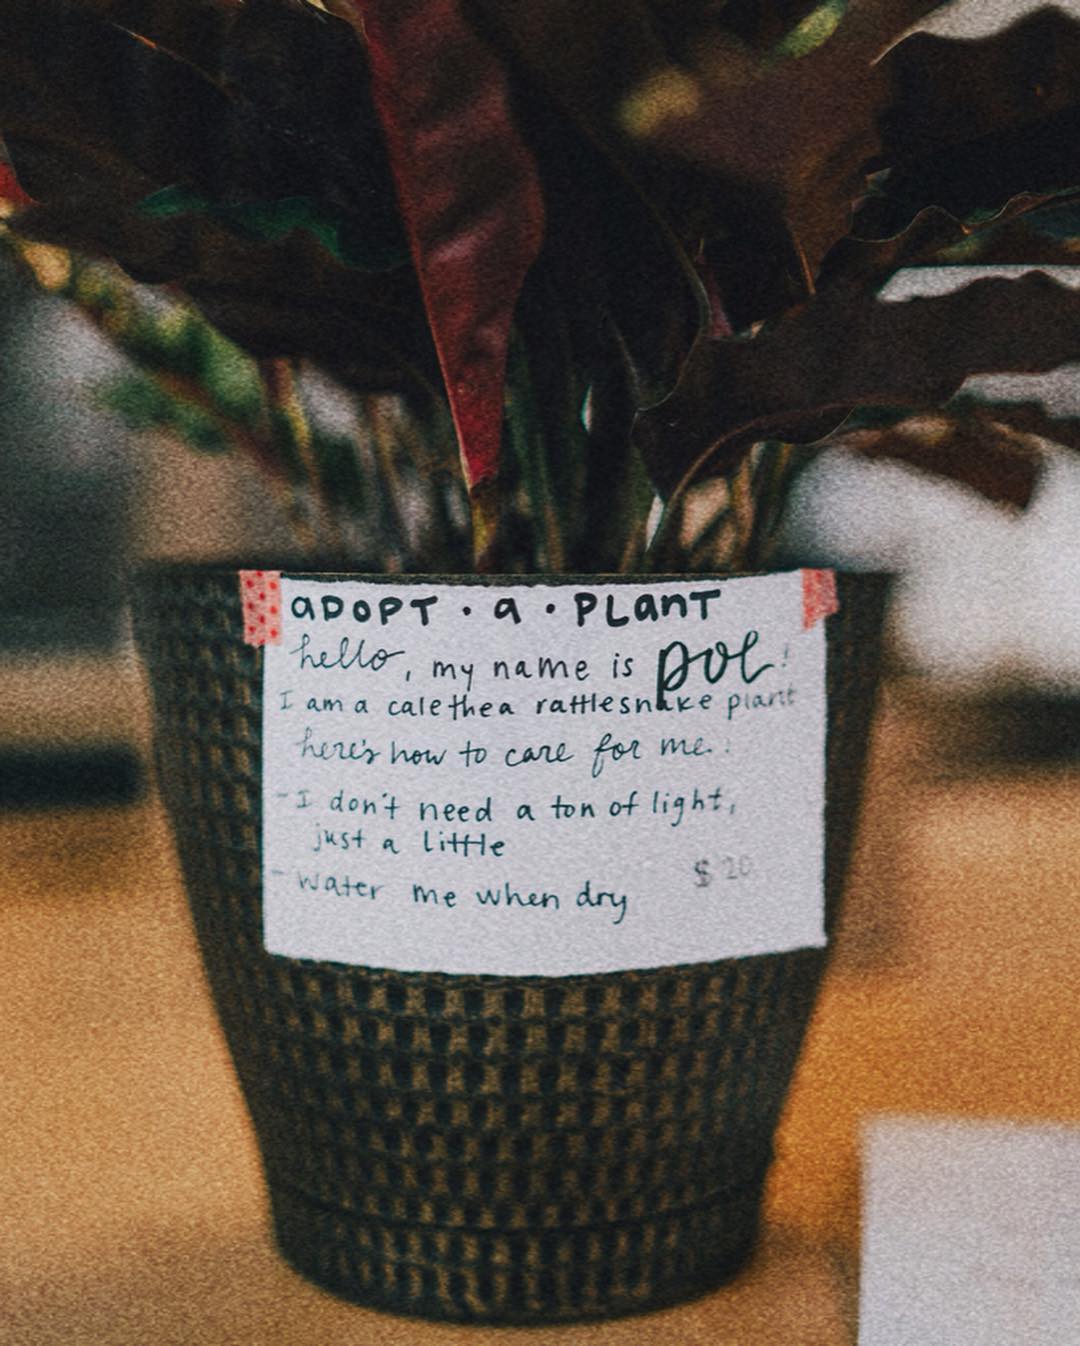 aDOPT · a · PLanT
hello, my name is pol!
I am a calethea rattlesnake plant
here's how to care for me:
- I don't need a ton of light,
just a little
- Water me when dry
$20